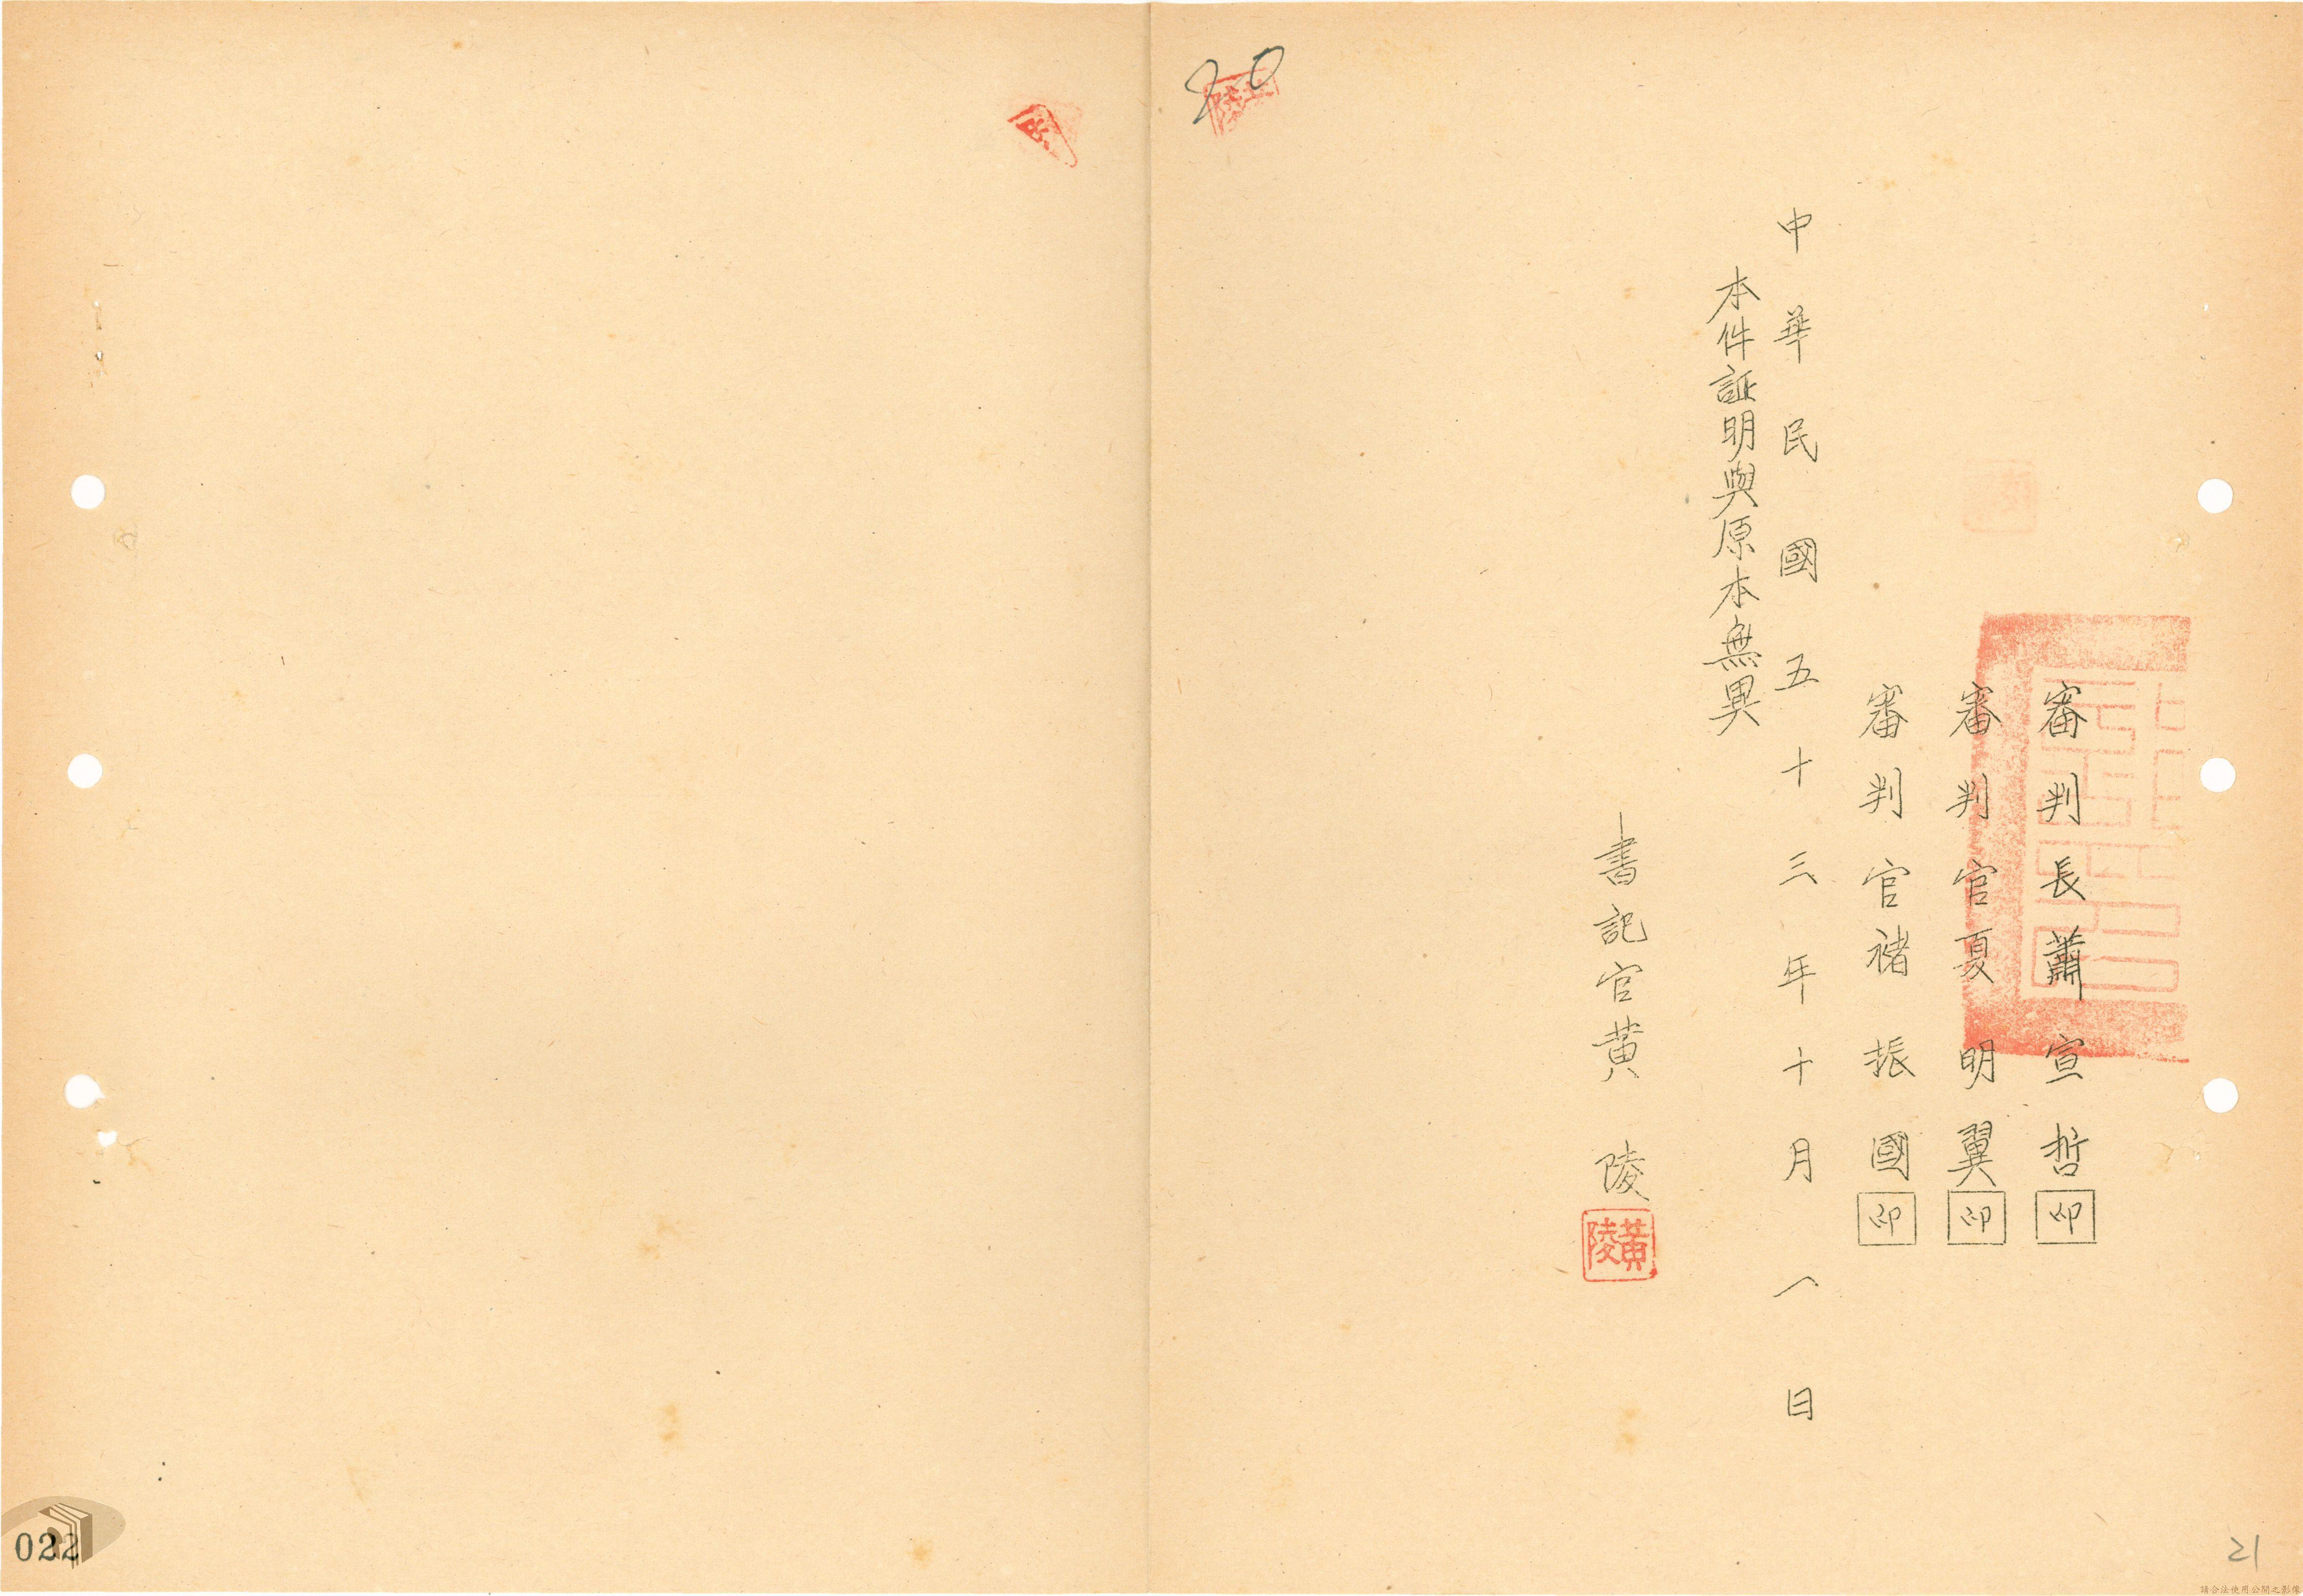 審判長蕭宣哲印
審判官夏明翼印
審判官褚振國印
中華民國五十三年十月八日
本件証明與原本無異
書記官黃陵
黃陵
20
022
21
請合法使用公開之影像